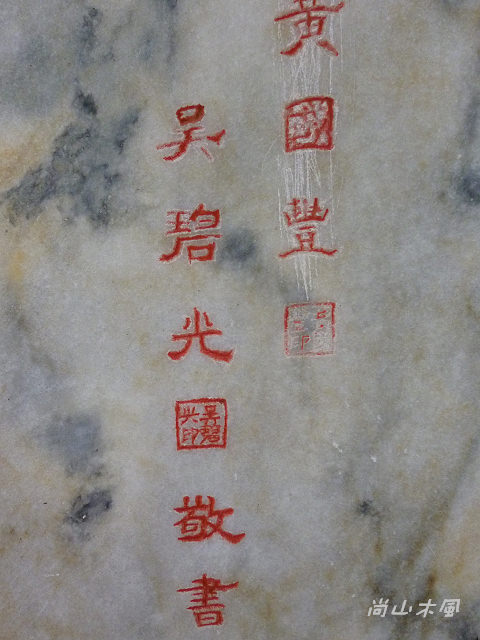 黃國豐
吳碧光
吳碧光印
敬書
尚山木風